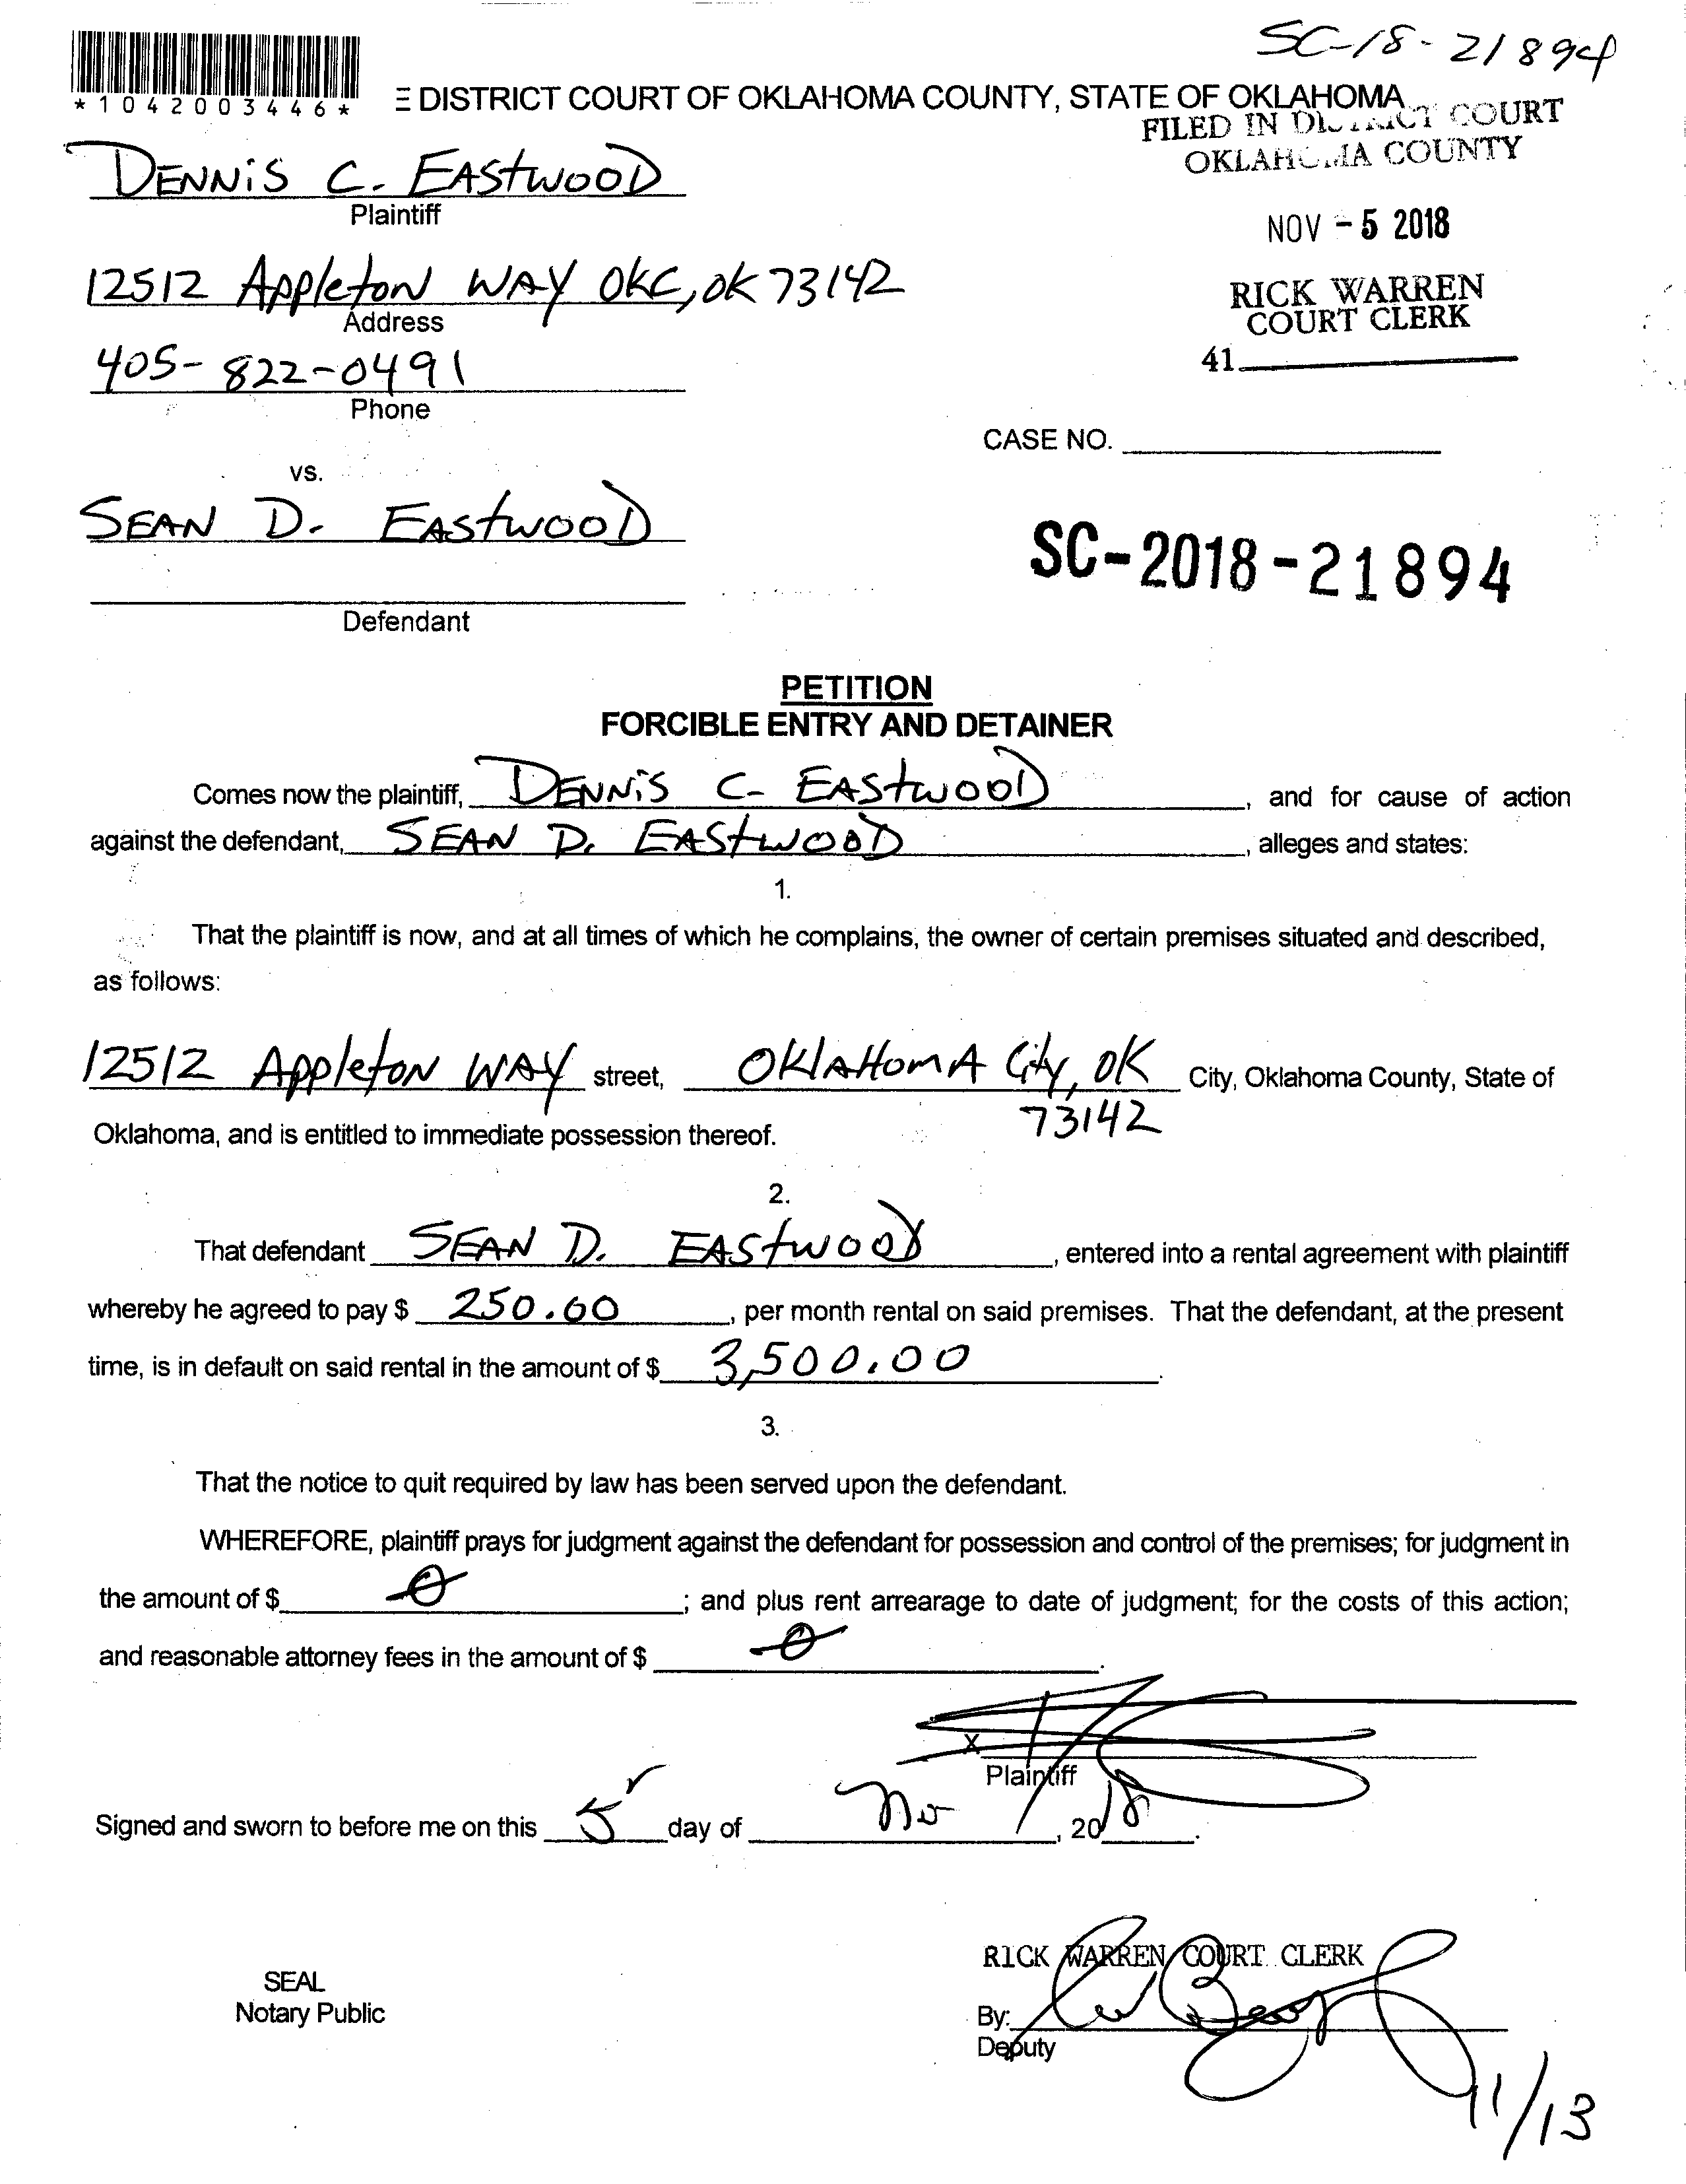 SC-18-21894
*1042003446*
E DISTRICT COURT OF OKLAHOMA COUNTY, STATE OF OKLAHOMA
FILED IN DISTRICT COURT
OKLAHOMA COUNTY
DENNiS C. EAStwooD
Plaintiff
NOV - 5 2018
12512 Appleton WAY OKC, OK 73142
Address
RICK WARREN
COURT CLERK
41
405-822-0491
Phone
CASE NO.
vs.
SEAN D. EAStwooD
SC-2018-21894
Defendant
PETITION
FORCIBLE ENTRY AND DETAINER
Comes now the plaintiff, DENNiS C. EAStwooD, and for cause of action
against the defendant, SEAN D. EAStwooD, alleges and states:
1.
That the plaintiff is now, and at all times of which he complains, the owner of certain premises situated and described,
as follows:
12512 Appleton WAY street, OklAHomA City, OK City, Oklahoma County, State of
73142
Oklahoma, and is entitled to immediate possession thereof.
2.
That defendant SEAN D. EAStwooD, entered into a rental agreement with plaintiff
whereby he agreed to pay $ 250.00, per month rental on said premises. That the defendant, at the present
time, is in default on said rental in the amount of $ 3,500.00.
3.
That the notice to quit required by law has been served upon the defendant.
WHEREFORE, plaintiff prays for judgment against the defendant for possession and control of the premises; for judgment in
the amount of $ 0; and plus rent arrearage to date of judgment; for the costs of this action;
and reasonable attorney fees in the amount of $ 0.
X
Plaintiff
Signed and sworn to before me on this 5 day of Nov, 2018.
RICK WARREN COURT CLERK
SEAL
Notary Public
By:
Deputy
11/13